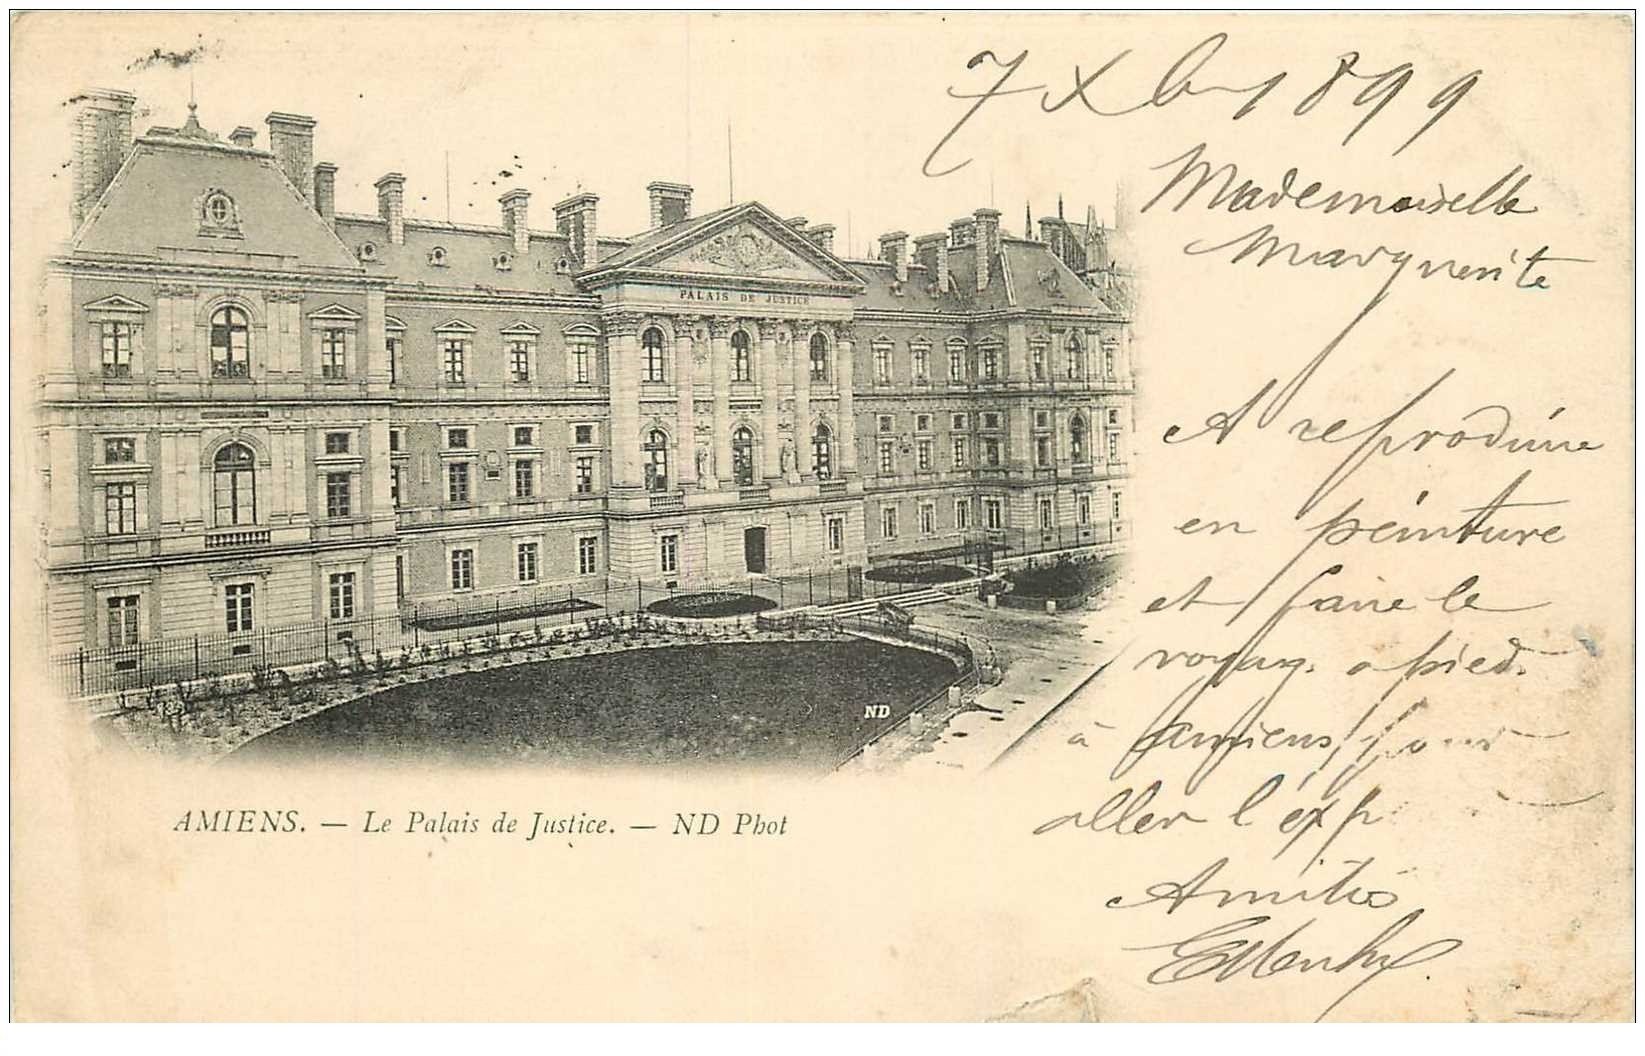 7 Xbre 1899
Mademoiselle
Marguerite
A reproduire
en peinture
et faire le
voyage a pied
à amiens pour
aller l'exp
Amitiés
PALAIS DE JUSTICE
ND
AMIENS. — Le Palais de Justice. — ND Phot